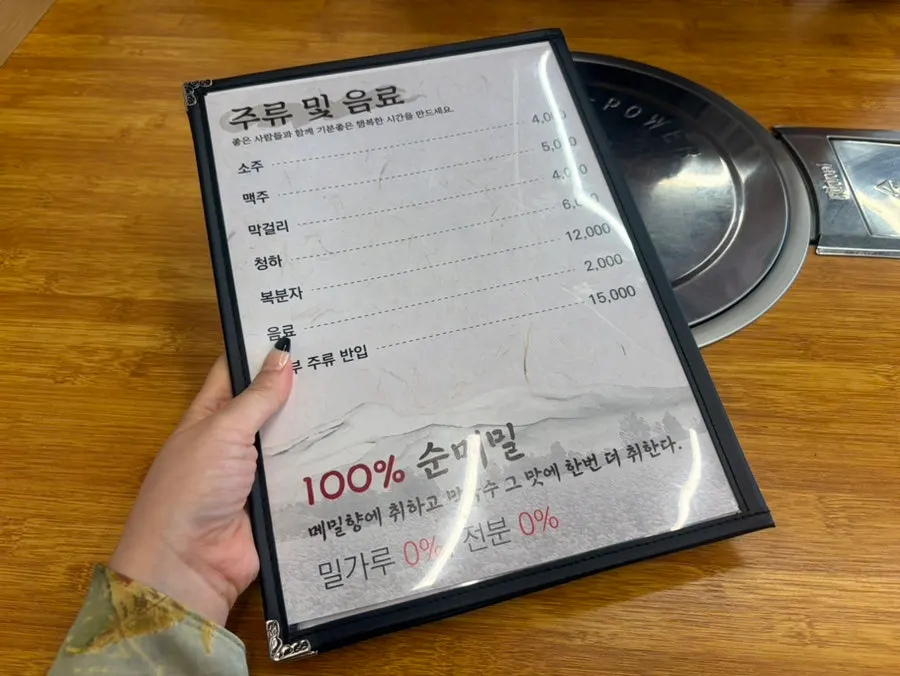 주류 및 음료
좋은 사람들과 함께 기분좋은 행복한 시간을 만드세요.
소주 4,000
맥주 5,000
막걸리 4,000
청하
복분자 12,000
음료 2,000
주류 반입 15,000
100% 순메밀
메밀향에 취하고 그 맛에 한번 더 취한다.
밀가루 0% 전분 0%
POWER
Rinnai